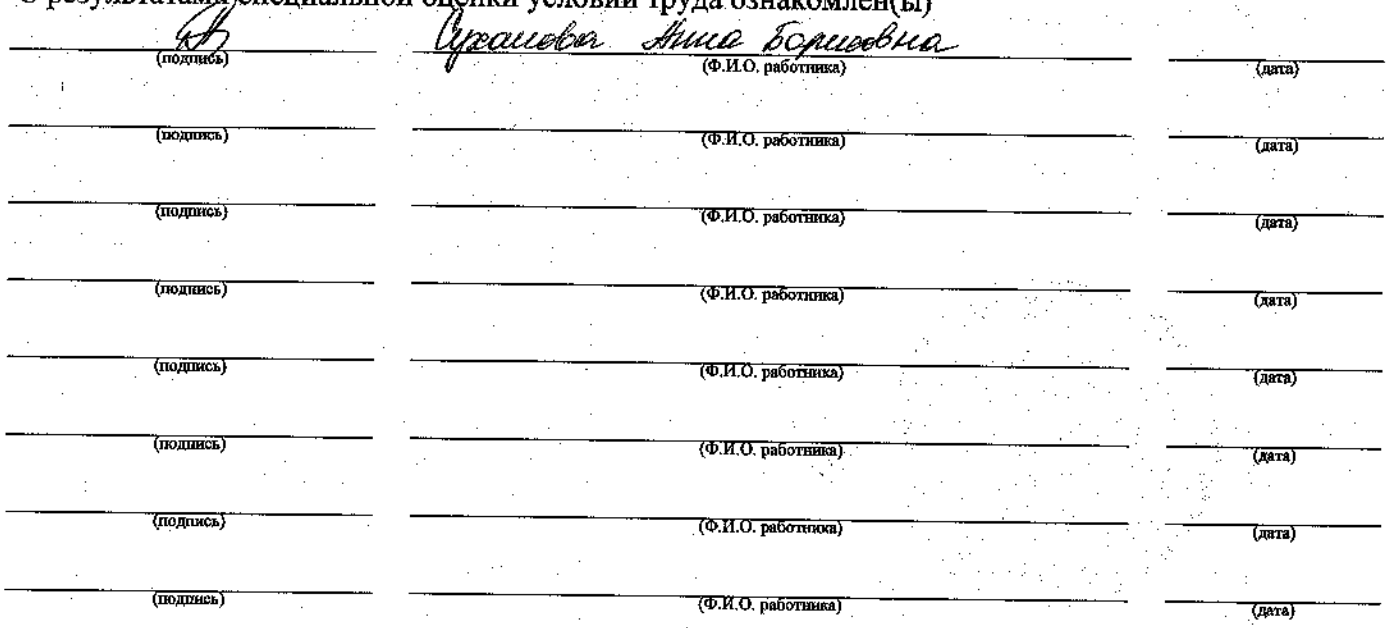 С результатами специальной оценки условий труда ознакомлен(ы)
Суханова Анна Борисовна
(подпись) (Ф.И.О. работника) (дата)
(подпись) (Ф.И.О. работника) (дата)
(подпись) (Ф.И.О. работника) (дата)
(подпись) (Ф.И.О. работника) (дата)
(подпись) (Ф.И.О. работника) (дата)
(подпись) (Ф.И.О. работника) (дата)
(подпись) (Ф.И.О. работника) (дата)
(подпись) (Ф.И.О. работника) (дата)